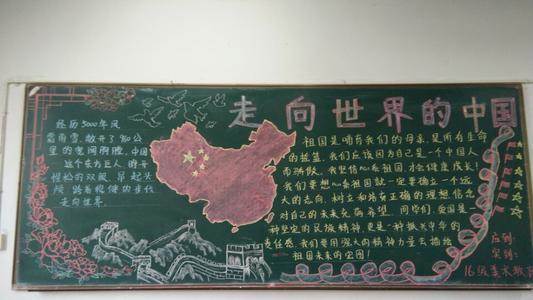 走向世界的中国
经历5000年风
霜雨雪，敞开了960公
里的宽阔胸膛，中国
这个东方巨人，睁开
惺忪的双眼，昂起头
颅，踏着稳健的步伐
走向世界
祖国是哺育我们的母亲，是所有生命
的摇篮，我们应该因为自己是一个中国人
而骄傲。我坚信心系祖国，才能健康成长！
我们要想心系祖国就一定要确立一个远
大的志向，树立和培育正确的理想信念
对自己的未来充满希望，同学们，爱国是一
种坚定的民族精神，更是一种振兴中华的
责任感，我们要用强大的精神力量去描绘
祖国未来的宏图！
应到：
实到：
16级美术教育